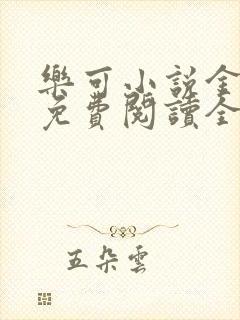 樂可小說全
免費閱讀全
五朵雲